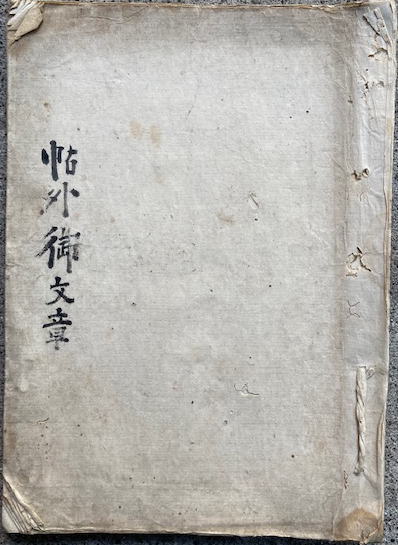 帖外御文章